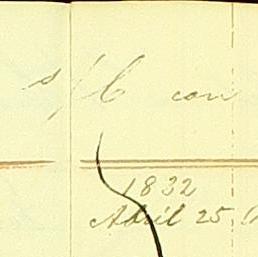 a/c con
1832
April 25